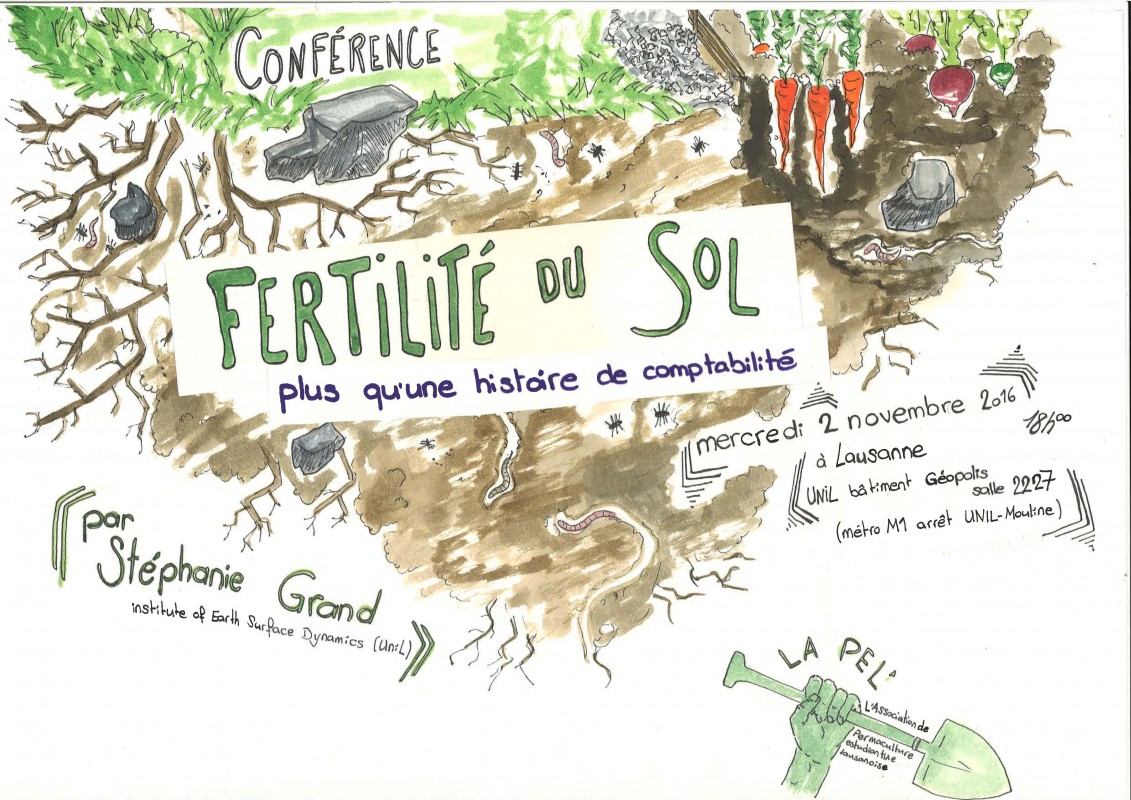 CONFÉRENCE
FERTILITÉ DU SOL
plus qu'une histoire de comptabilité
mercredi 2 novembre 2016
18h00
à Lausanne
UNIL bâtiment Géopolis
salle 2227
(métro M1 arrêt UNIL-Mouline)
par
Stéphanie Grand
institute of Earth Surface Dynamics (UniL)
LA PEL'
L'Association de
Permaculture
estudiantine
lausanoise